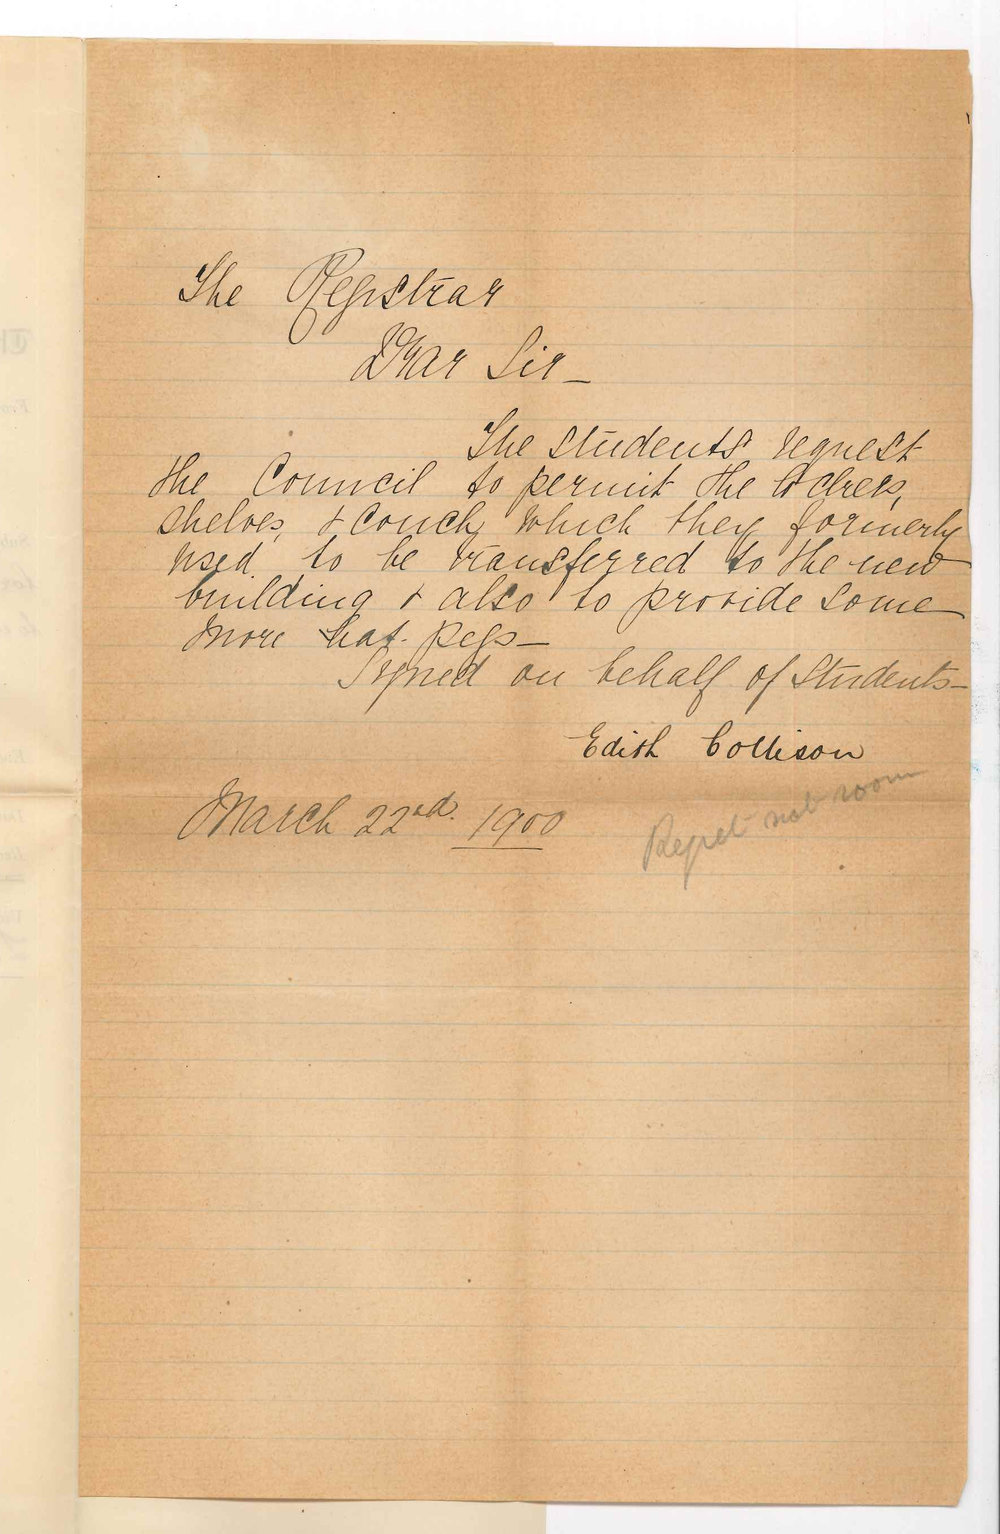 The Registrar
Dear Sir_
The students request
the Council to permit the lockers,
shelves, & couch, which they formerly
used to be transferred to the new
building & also to provide some
more hat-pegs—
Signed on behalf of Students—
Edith Collison
March 22nd. 1900
Regret not room